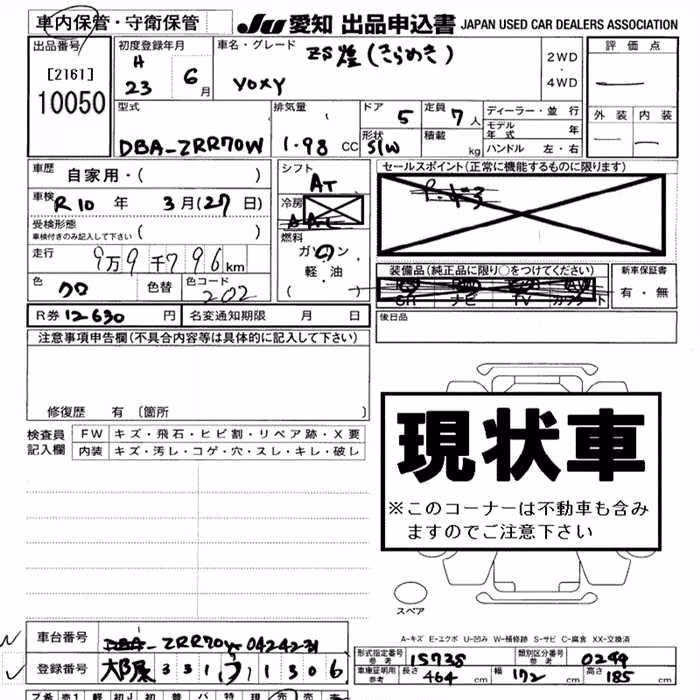 車内保管・守衛保管 JU 愛知 出品申込書 JAPAN USED CAR DEALERS ASSOCIATION
出品番号 初度登録年月 車名・グレード ZS 煌(きらめき) 2WD ・ 4WD 評価点
[2161] H 23 6月 VOXY
10050 外装 内装
型式 排気量 ドア 5 定員 7人 ディーラー・並行
DBA-ZRR70W 1.98 CC 形状 S/W 積載 kg モデル年式 年
ハンドル 左・右
車歴 自家用・( ) シフト AT セールスポイント(正常に機能するものに限ります)
車検 R10 年 3月(27日) 冷房 AAC
受検形態 車検付きのみ記入して下さい ( ) 燃料
走行 9万9千796km ガソリン
軽・油 装備品(純正品に限り○をつけてください) 新車保証書
色 クロ 色替 色コード 202 ( ) SR ナビ TV カワシート 有・無
R券 12630円 名変通知期限 月 日 後日品
注意事項申告欄(不具合内容等は具体的に記入して下さい)
修復歴 有 〔箇所 〕
検査員記入欄 FW キズ・飛石・ヒビ割・リペア跡・X要
内装 キズ・汚レ・コゲ・穴・スレ・キレ・破レ
現状車
※このコーナーは不動車も含み
ますのでご注意下さい
スペア
A-キズ E-エクボ U-凹み W-補修跡 S-サビ C-腐食 XX-交換済
車台番号 DBA- ZRR70W 0424231
形式指定番号 参考 15738 類別区分番号 参考 0249
登録番号 331 1306
車車証明用 参考 長さ 464cm 幅 172cm 高さ 185cm